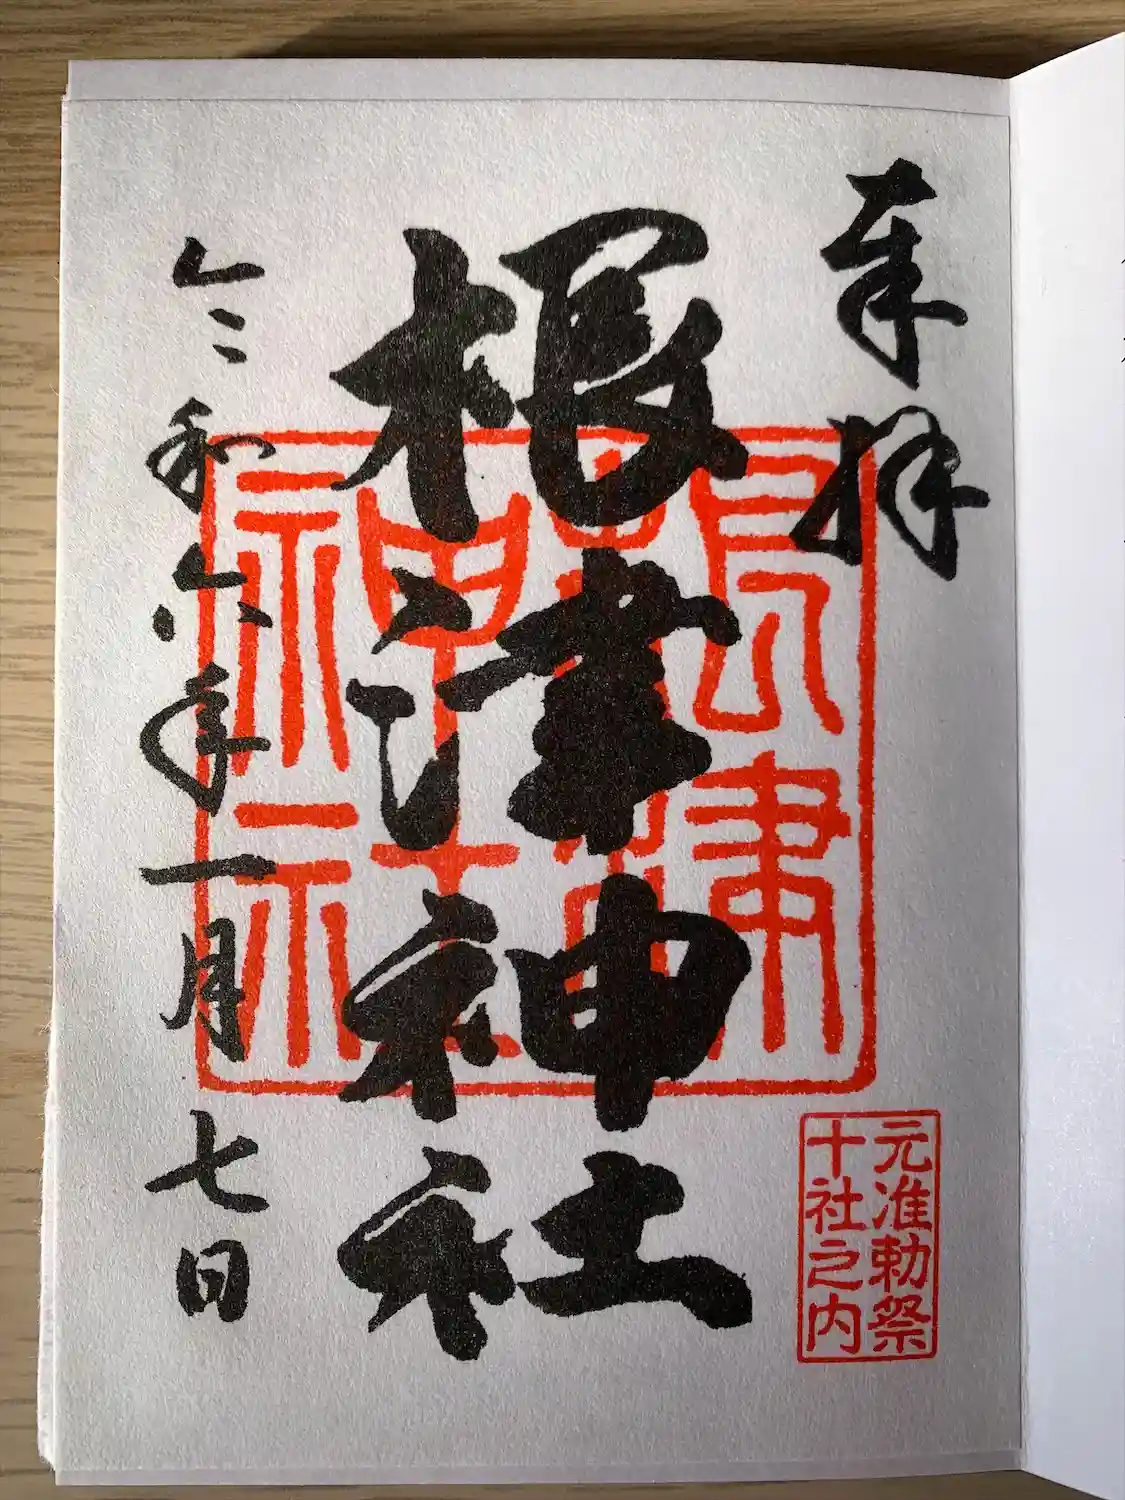 奉拝
元准勅祭
十社之内
根津神社
根津
神社
令和六年一月七日